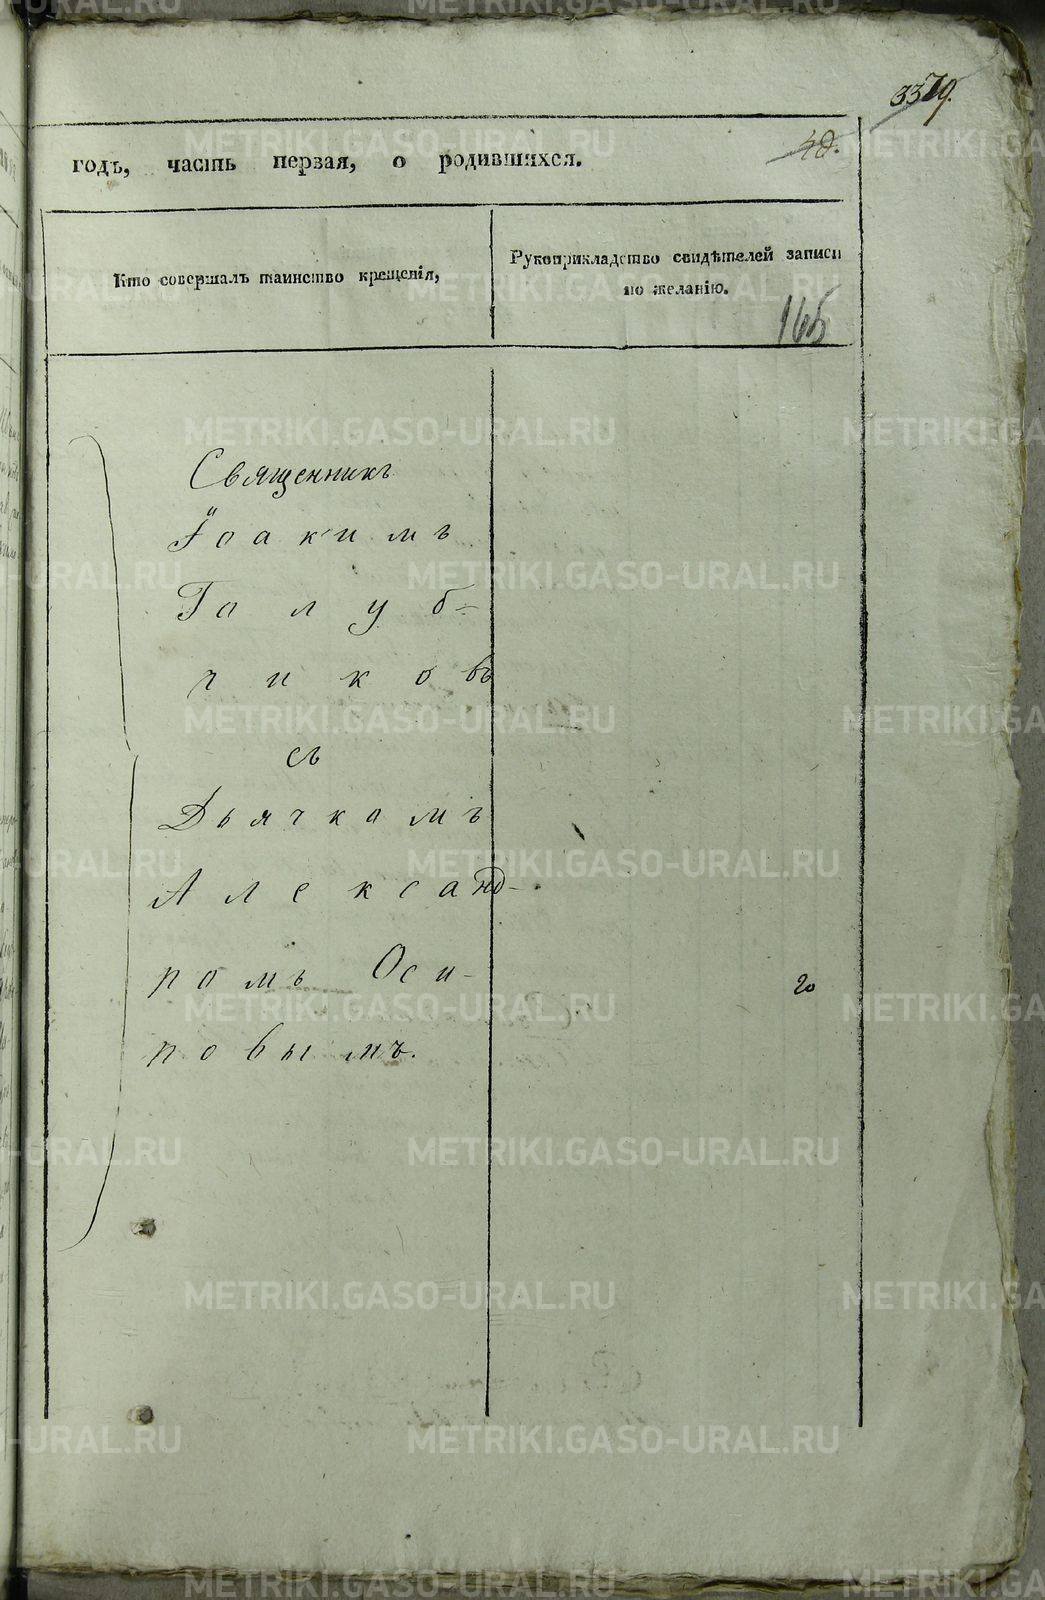 годъ, часть первая, о родившихся.
Кто совершалъ таинство крещенія,
Рукоприкладство свидѣтелей записи
по желанію.
165
Священникъ
Іоакимъ
Голуб=
чиковъ
съ
Дьячкомъ
Александ-
ромъ Оси-
повымъ.
20
METRIKI.GASO-URAL.RU